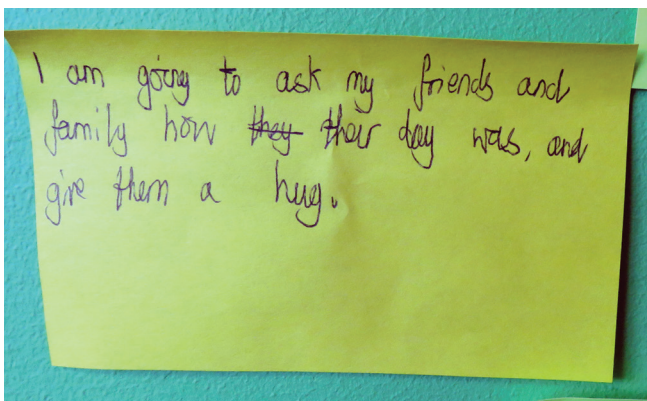 I am going to ask my friends and
family how they their day was, and
give them a hug.